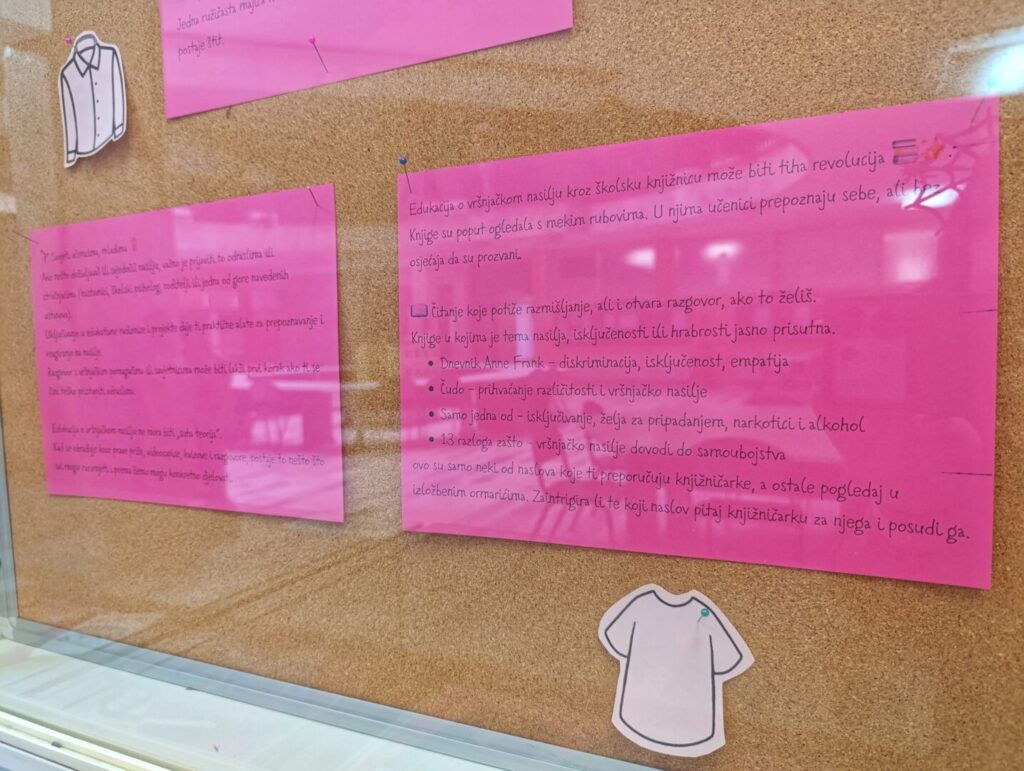 Jedna ružičasta majica
postaje štit.
Savjeti učenicima, mladima
Ako nešto doživljavaš ili svjedočiš nasilju, važno je prijaviti to odraslima ili
stručnjacima (nastavnici, školski psiholog, roditelji ili jedna od gore navedenih
ustanova).
Uključivanje u edukativne radionice i projekte daje ti praktične alate za prepoznavanje i
reagiranje na nasilje.
Razgovor s vršnjakom pomagačima ili savjetnicima može biti lakši prvi korak ako ti se
čini teško pristupiti odraslima.
Edukacija o vršnjačkom nasilju ne mora biti „suha teorija".
Kad se obrađuje kroz prave priče, videoisječke, kvizove i razgovore, postaje to nešto što
svi mogu razumjeti i prema čemu mogu konkretno djelovati.
Edukacija o vršnjačkom nasilju kroz školsku knjižnicu može biti tiha revolucija
Knjige su poput ogledala s mekim rubovima. U njima učenici prepoznaju sebe, ali bez
osjećaja da su prozvani.
Čitanje koje potiče razmišljanje, ali i otvara razgovor, ako to želiš.
Knjige u kojima je tema nasilja, isključenosti ili hrabrosti jasno prisutna.
• Dnevnik Anne Frank – diskriminacija, isključenost, empatija
• Čudo – prihvaćanje različitosti i vršnjačko nasilje
• Samo jedna od – isključivanje, želja za pripadanjem, narkotici i alkohol
• 13 razloga zašto – vršnjačko nasilje dovodi do samoubojstva
ovo su samo neki od naslova koje ti preporučuju knjižničarke, a ostale pogledaj u
izložbenim ormarićima. Zaintrigira li te koji naslov pitaj knjižničarku za njega i posudi ga.